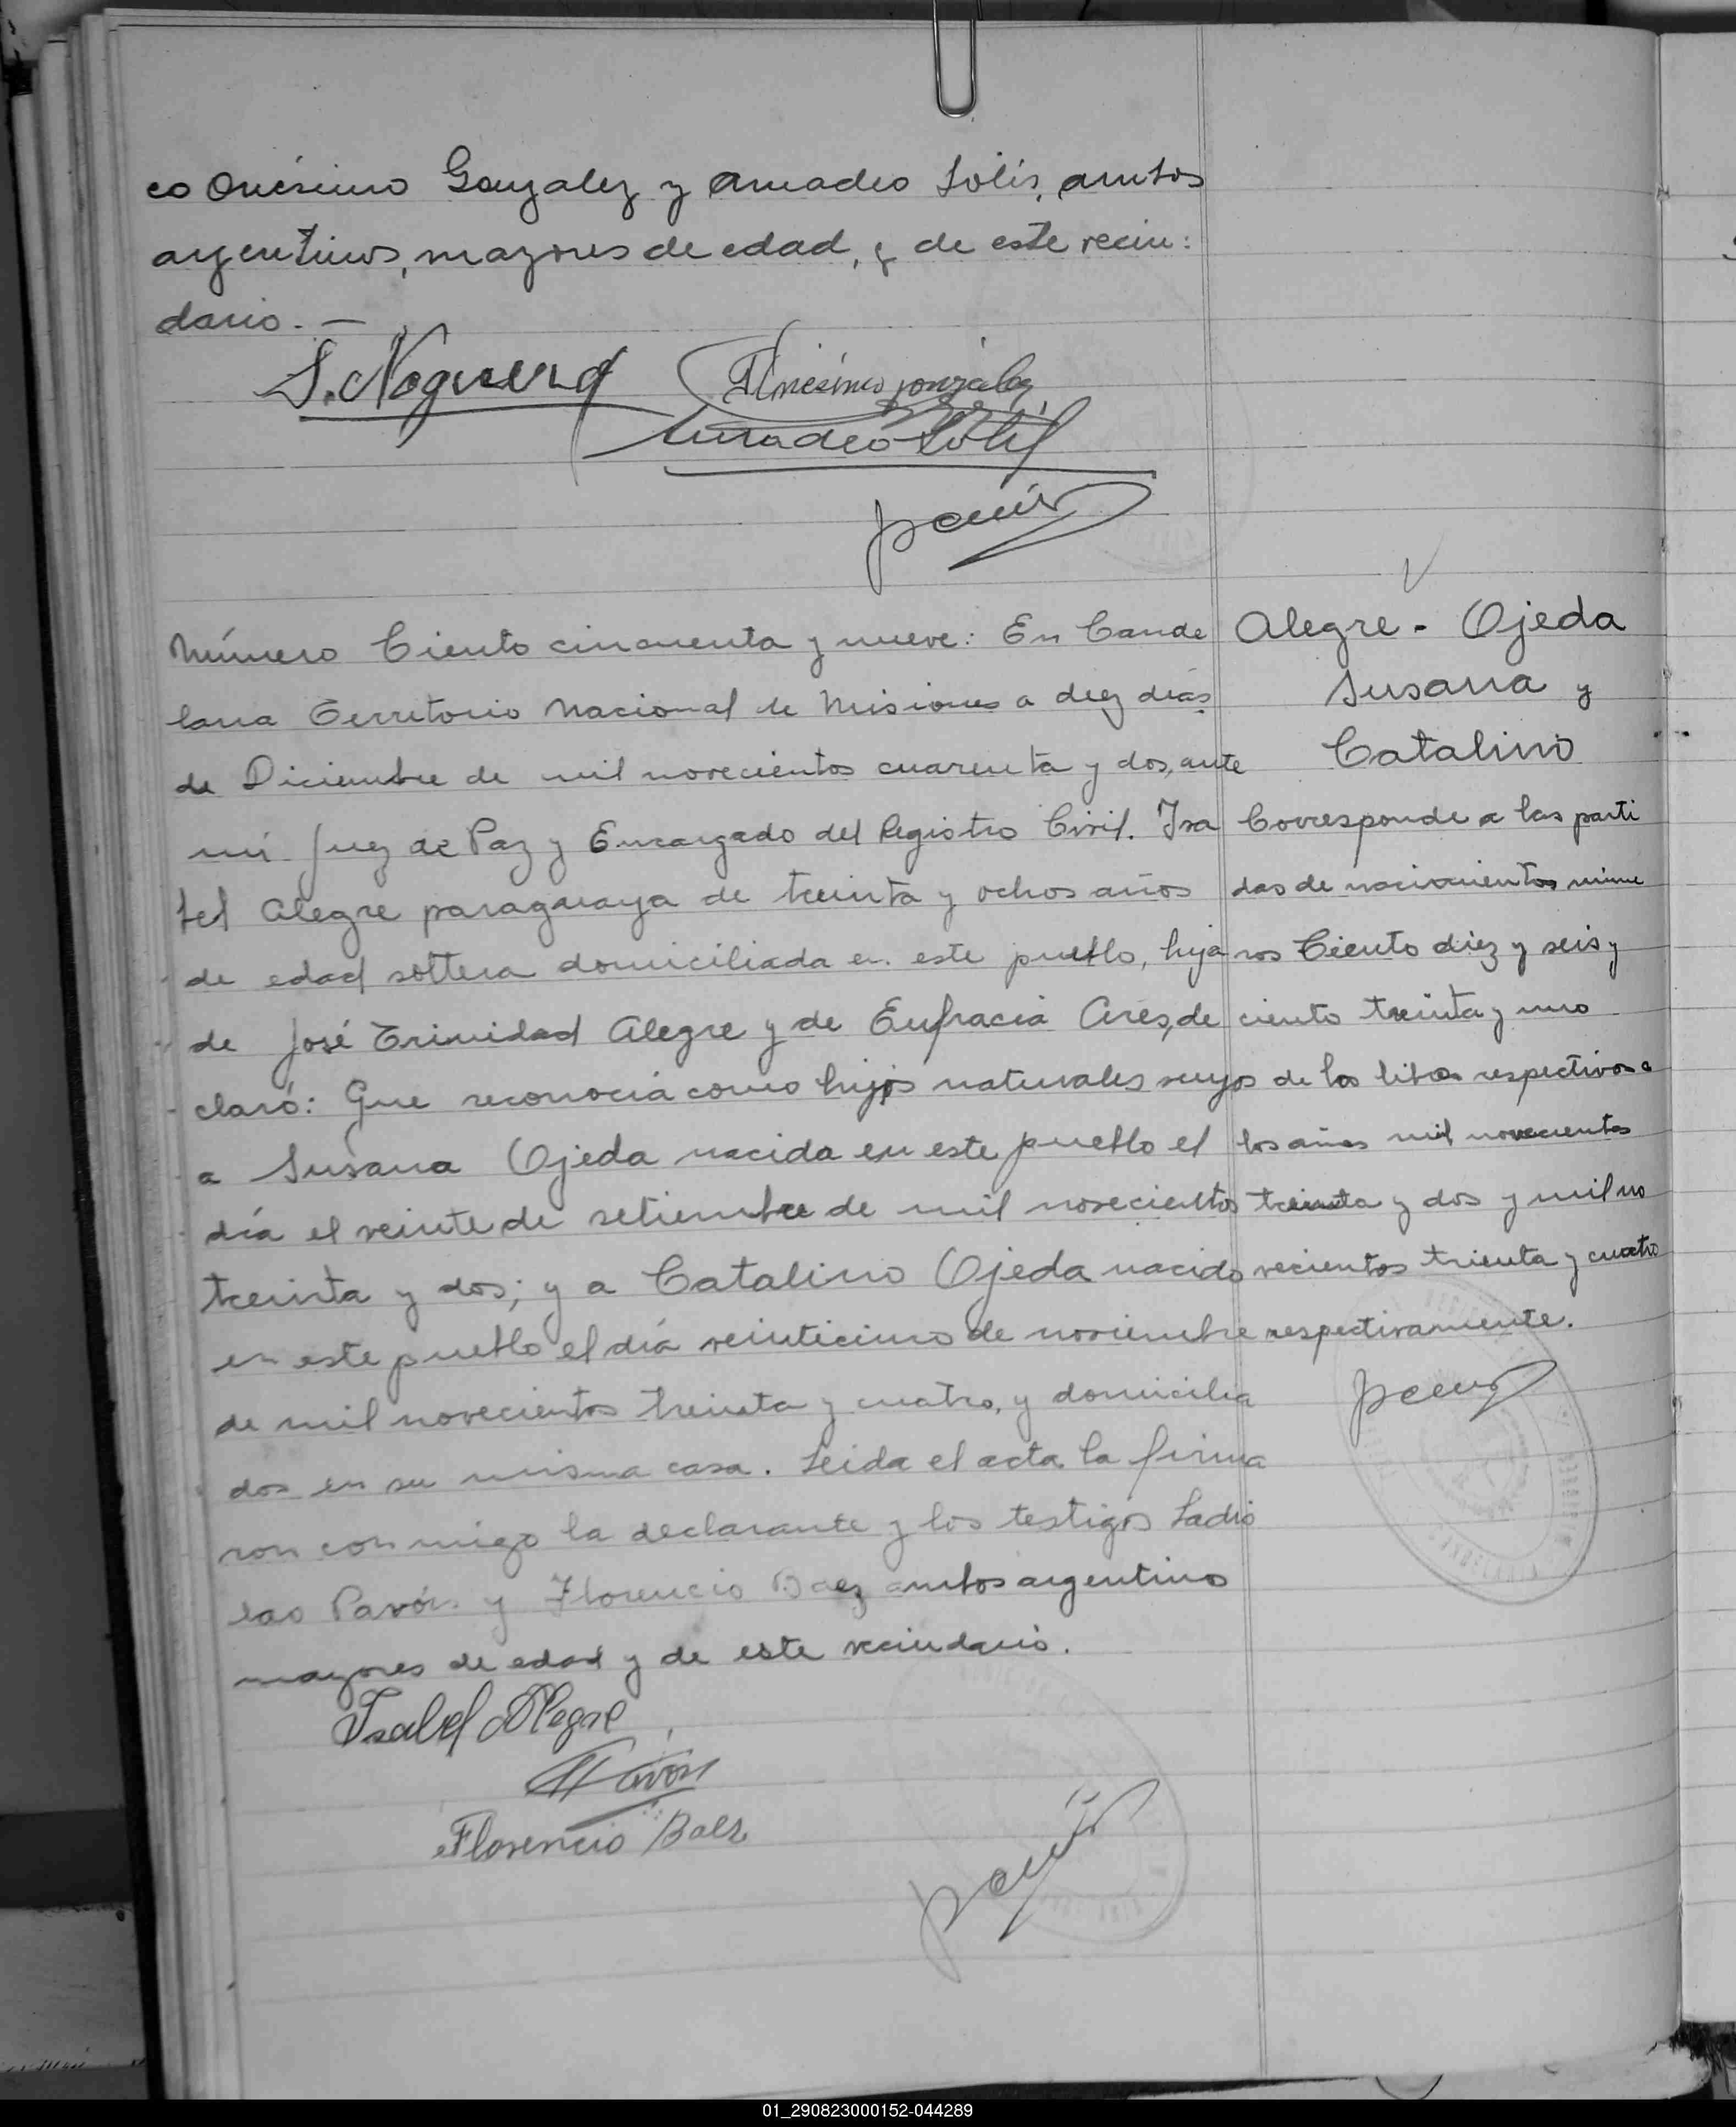 co Onésimo Gonzalez y Amadeo Solis, ambos
argentinos, mayores de edad, y de este vecin:
dario. —
S. Noguera
Onésimo Gonzalez
Amadeo Solis
Número Ciento cincuenta y nueve: En Cande
laria Territorio Nacional de Misiones a diez dias
de Diciembre de mil novecientos cuarenta y dos, ante
mi Juez de Paz y Encargado del Registro Civil. Isa
bel Alegre paraguaya de treinta y ochos años
de edad soltera domiciliada en este pueblo, hija
de José Trinidad Alegre y de Eufracia Aires, de
claró: Que reconocia como hijos naturales suyos
a Susana Ojeda nacida en este pueblo el
día el veinte de setiembre de mil novecientos
treinta y dos; y a Catalino Ojeda nacido
en este pueblo el día veinticinco de noviembre
de mil novecientos treinta y cuatro, y domicilia
dos en su misma casa. Leida el acta la firma
ron conmigo la declarante y los testigos Ladis
lao Pavón y Florencio Baez ambos argentino
mayores de edad y de este vecindario.
Isabel Alegre
Pavon
Florencio Baez
Alegre - Ojeda
Susana y
Catalino
Corresponde a las parti
das de nacimientos núme
ros Ciento diez y seis y
ciento treinta y uno
de los libros respectivos a
los años mil novecientos
treinta y dos y mil no
vecientos trienta y cuatro
respectivamente.
01_290823000152-044289